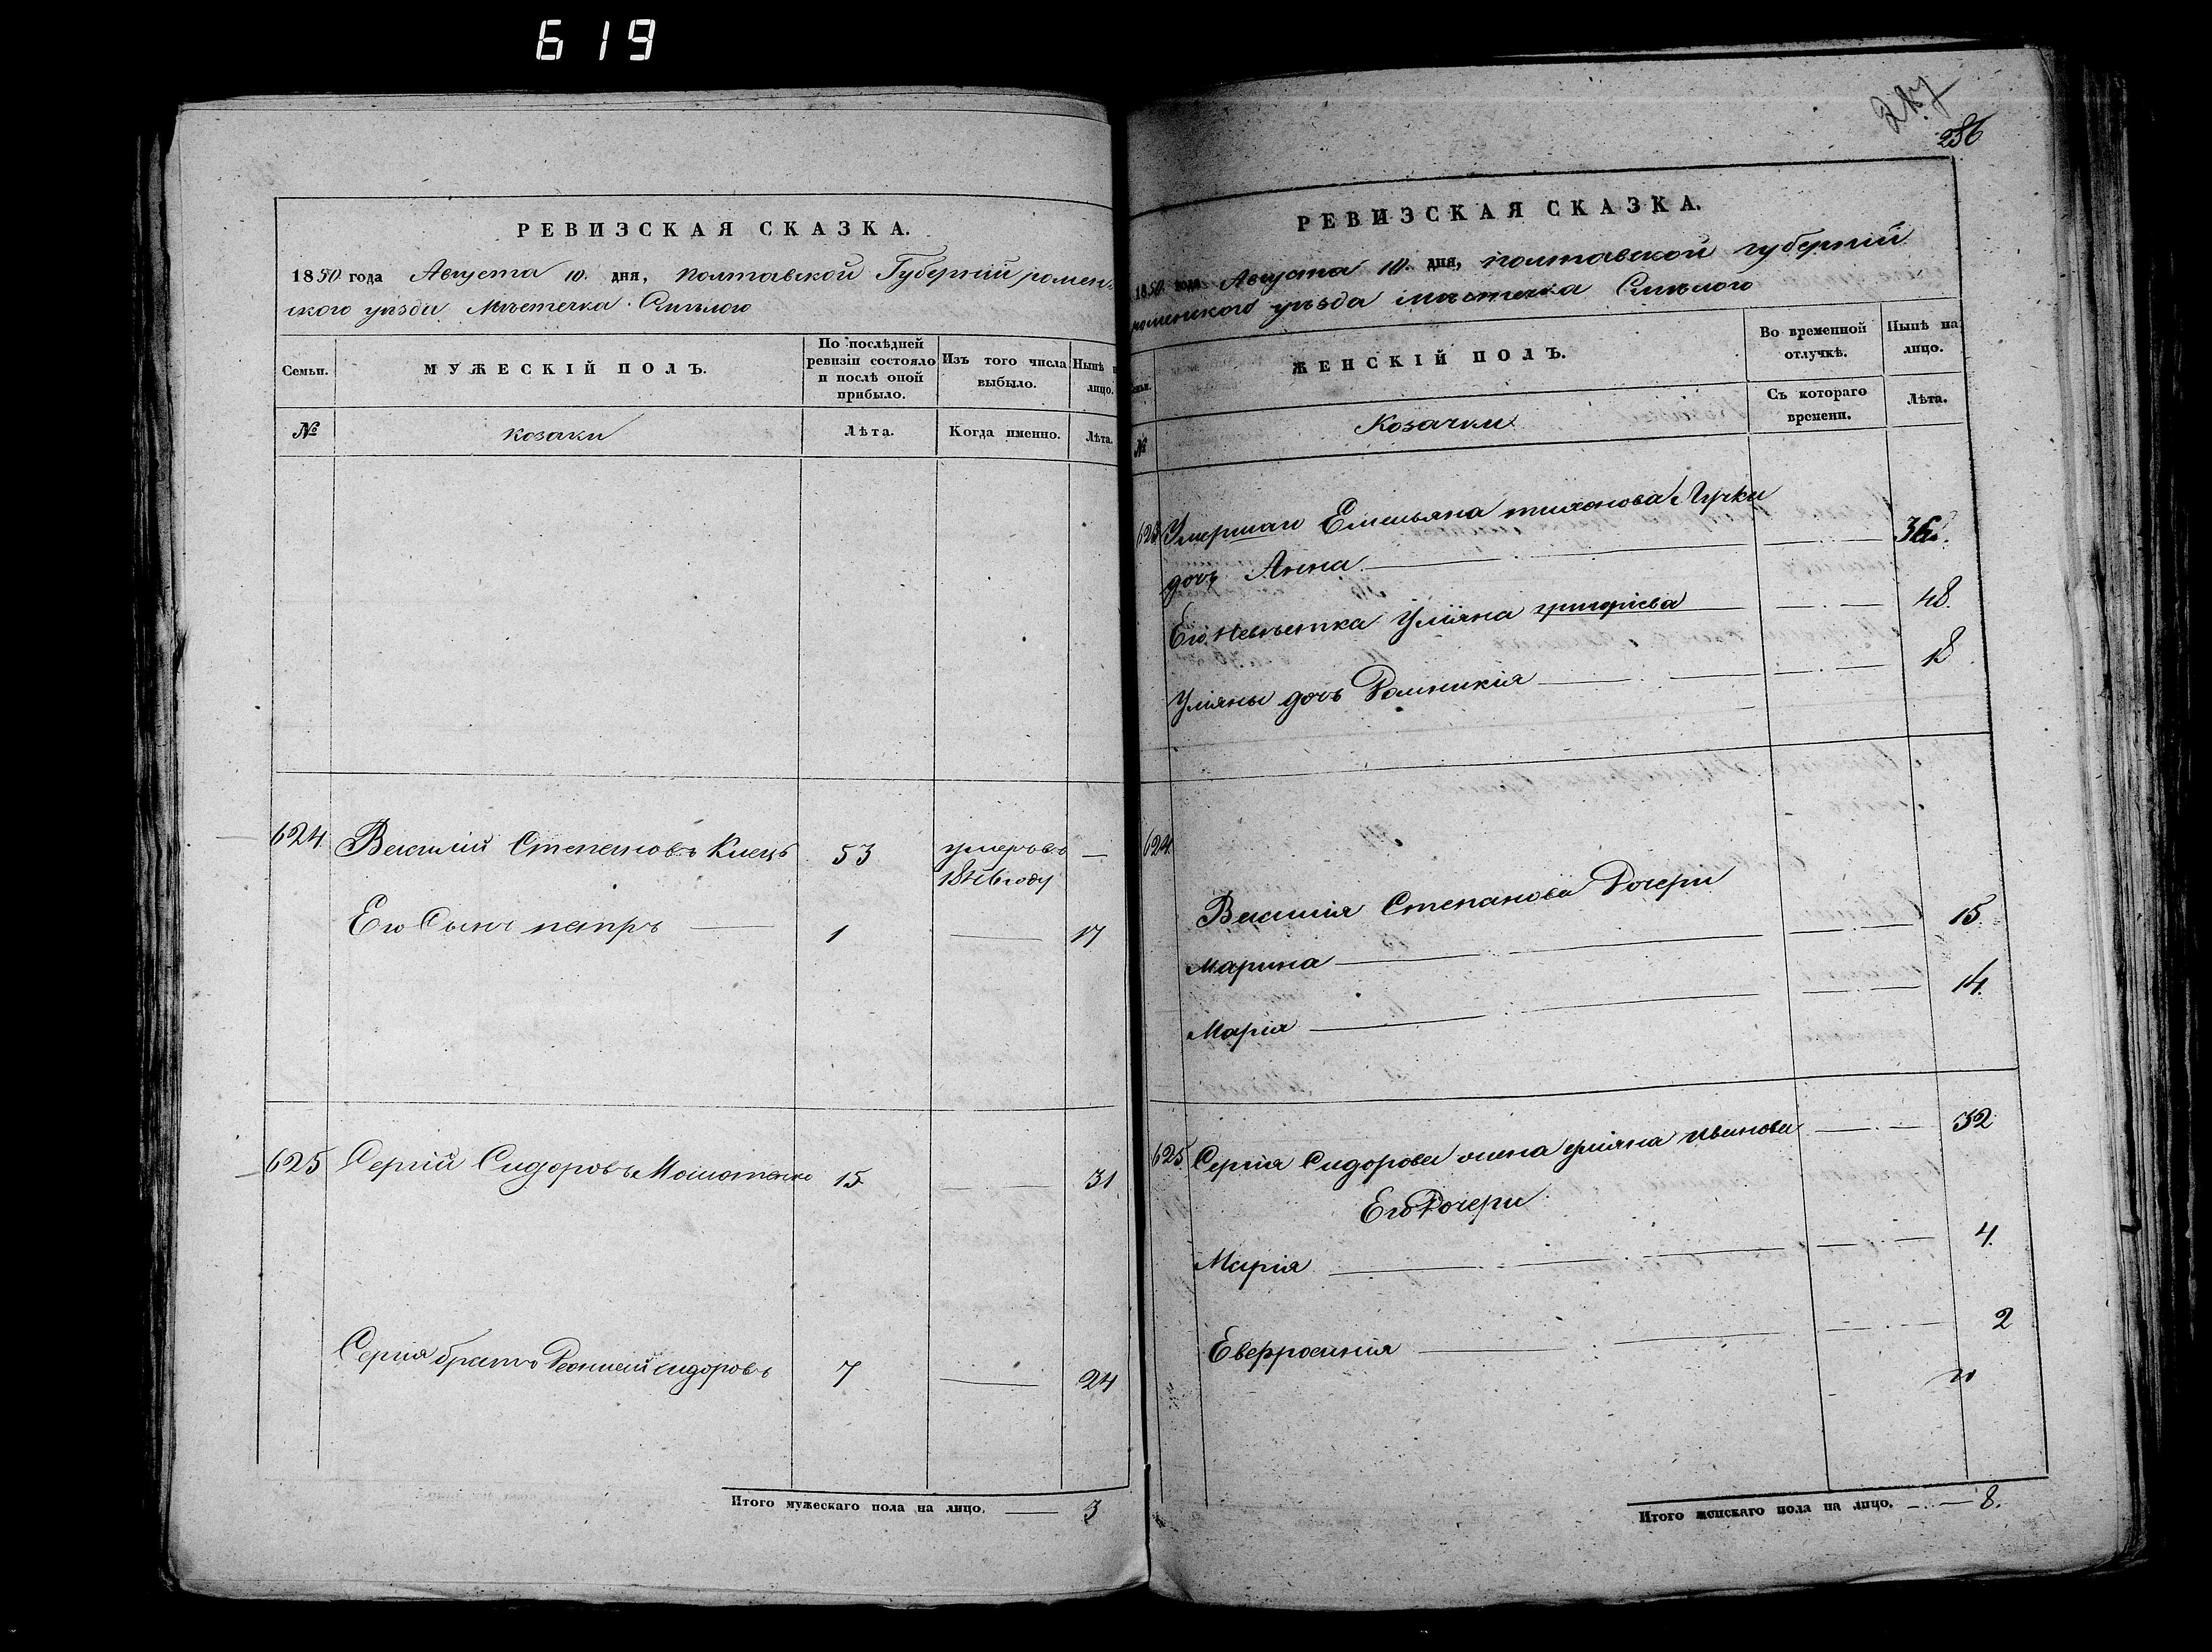 619
РЕВИЗСКАЯ СКАЗКА.
1850 года Августа 10. дня, Полтавской Губерніи ромен-
ского уѣзда Мѣстечка Смѣлого
Семьи.
МУЖЕСКІЙ ПОЛЪ.
По послѣдней ревизіи состояло и послѣ оной прибыло.
Изъ того числа выбыло.
Нынѣ на лицо.
№
козаки
Лѣта.
Когда именно.
Лѣта.
624. Василій Степановъ 53 умеръ въ —
1846 году
Его Сынъ петръ — 1 — 17
625 Сергій Сидоровъ 15 — 31
Сергія братъ сидоровъ 7 — 24
Итого мужескаго пола на лицо. — 3
286
РЕВИЗСКАЯ СКАЗКА.
1850 года Августа 10. дня, полтавской губерніи
роменского уѣзда мѣстечка Смѣлого
Семьи.
ЖЕНСКІЙ ПОЛЪ.
Во временной отлучкѣ.
Нынѣ на лицо.
№
Козачки
Съ котораго времени.
Лѣта.
623 Умершаго Емельяна тихонова Лучки
дочь Анна — 36.
Его Невѣстка Уліяна григоріева — 48.
Уліяны дочь — 18
624.
Василія Степанова Дочери
Марина — 15.
Марія — 14.
625 Сергія Сидорова жена уліяна Иванова — 32
Его Дочери
Марія — 4.
Евфросинія — 2
Итого женскаго пола на лицо. — 8.